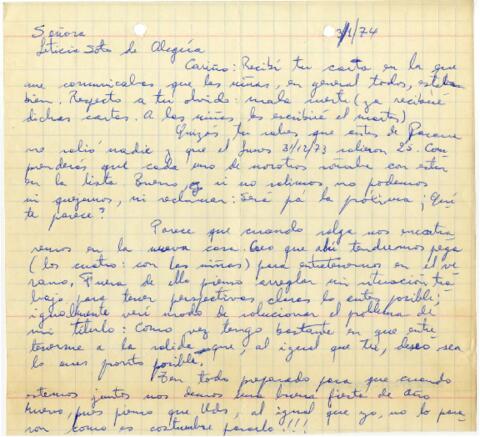 Señora 3/1/74
Leticia Soto de Alegría
Cariño: Recibí tu carta en la que
me comunicabas que las niñas, en general todos, estaban
bien. Respecto a tu olvido: mala suerte (ya recibiré
dichas cartas. A las niñas les escribiré el martes)
Quizás tu sabes que antes de Pascua
no salió nadie y que el lunes 31/12/73 salieron 25. Com
prenderás que cada uno de nosotros soñaba con estar
en la lista. Bueno, si no salimos no podemos
ni quejarnos, ni reclamar: Será pa la próxima; Qué
te parece?
Parece que cuando salga nos encontra
remos en la nueva casa. Creo que ahí tendremos pega
(los cuatro: con las niñas) para entretenernos en el ve
rano. Fuera de ello pienso arreglar mi situación tra
bajo, para tener perspectivas claras lo antes posible;
igualmente veré modo de solucionar el problema de
mi título: Como vez tengo bastante en que entre
tenerme a la salida que, al igual que tú, deseo sea
lo mas pronto posible.
Ten todo preparado para que cuando
estemos juntos nos demos una buena fiesta de Año
Nuevo, pues pienso que Uds, al igual que yo, no lo pasa
ron como es costumbre pasarlo!!!